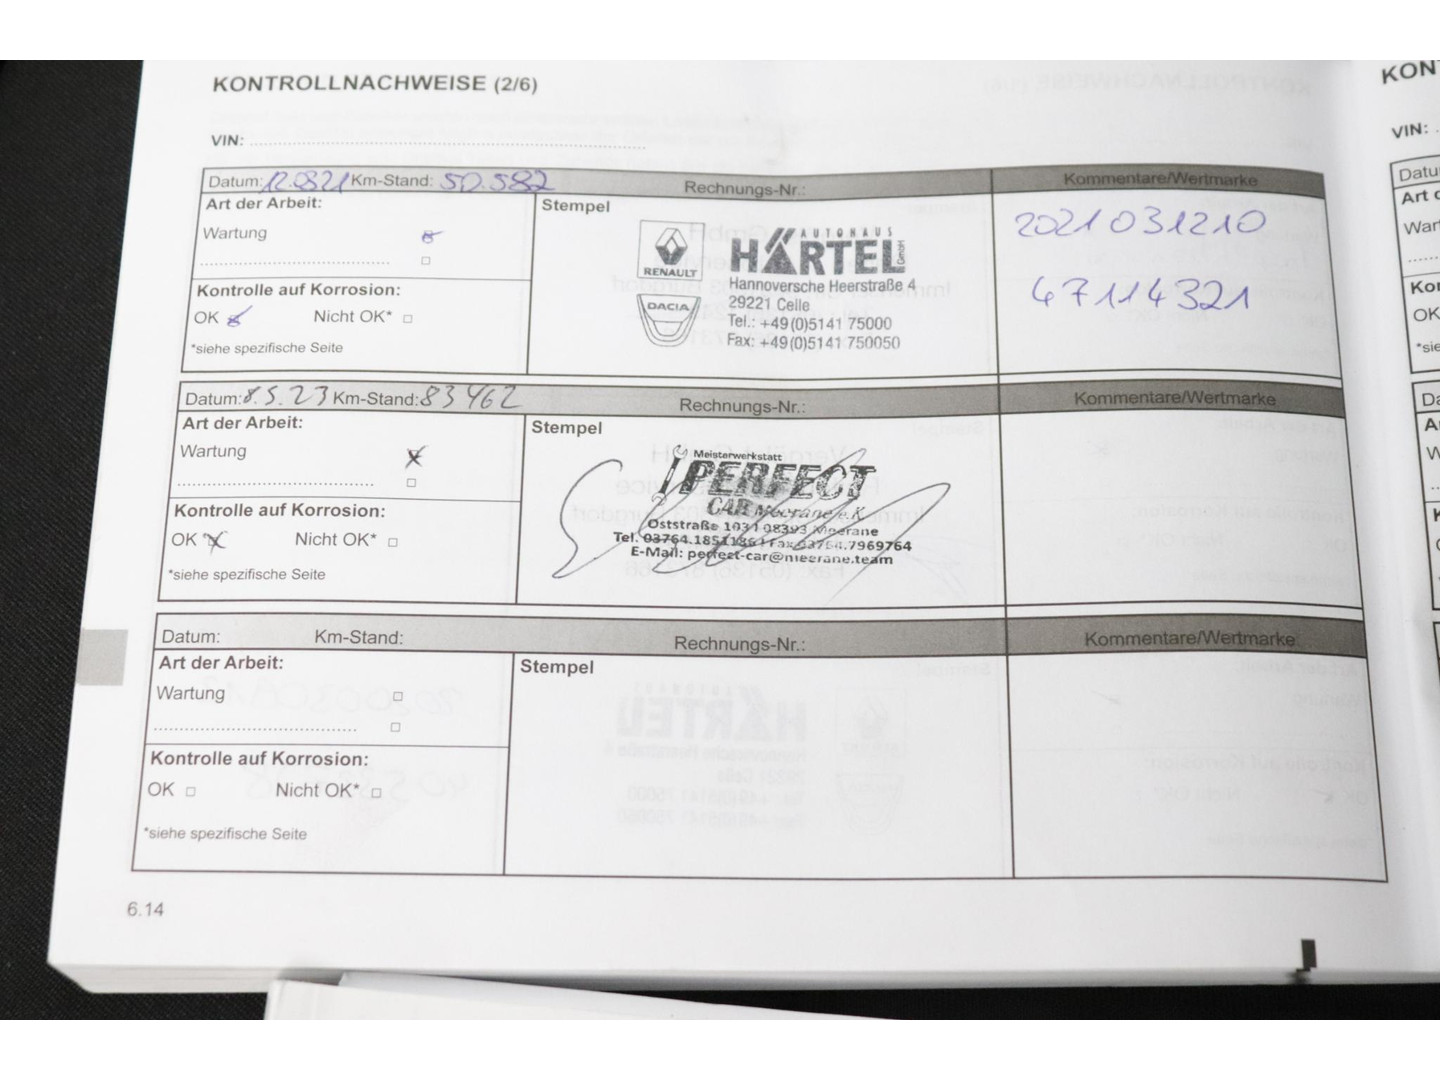 KONTROLLNACHWEISE (2/6)
VIN:
Datum: 12.0821 Km-Stand: 50.582 Rechnungs-Nr.: Kommentare/Wertmarke
Art der Arbeit: Stempel
Wartung
Kontrolle auf Korrosion:
OK Nicht OK*
*siehe spezifische Seite
RENAULT
DACIA
AUTOHAUS
HÄRTEL GmbH
Hannoversche Heerstraße 4
29221 Celle
Tel.: +49(0)5141 75000
Fax: +49(0)5141 750050
2021031210
67114321
Datum: 8.5.23 Km-Stand: 83462 Rechnungs-Nr.: Kommentare/Wertmarke
Art der Arbeit: Stempel
Wartung
Kontrolle auf Korrosion:
OK Nicht OK*
*siehe spezifische Seite
Meisterwerkstatt
PERFECT
CAR Meerane e.K
Oststraße 103 | 08393 Meerane
Tel. 03764.1851186 | Fax 03764.7969764
E-Mail: perfect-car@meerane.team
Datum: Km-Stand: Rechnungs-Nr.: Kommentare/Wertmarke
Art der Arbeit: Stempel
Wartung
Kontrolle auf Korrosion:
OK Nicht OK*
*siehe spezifische Seite
6.14
KON
VIN: